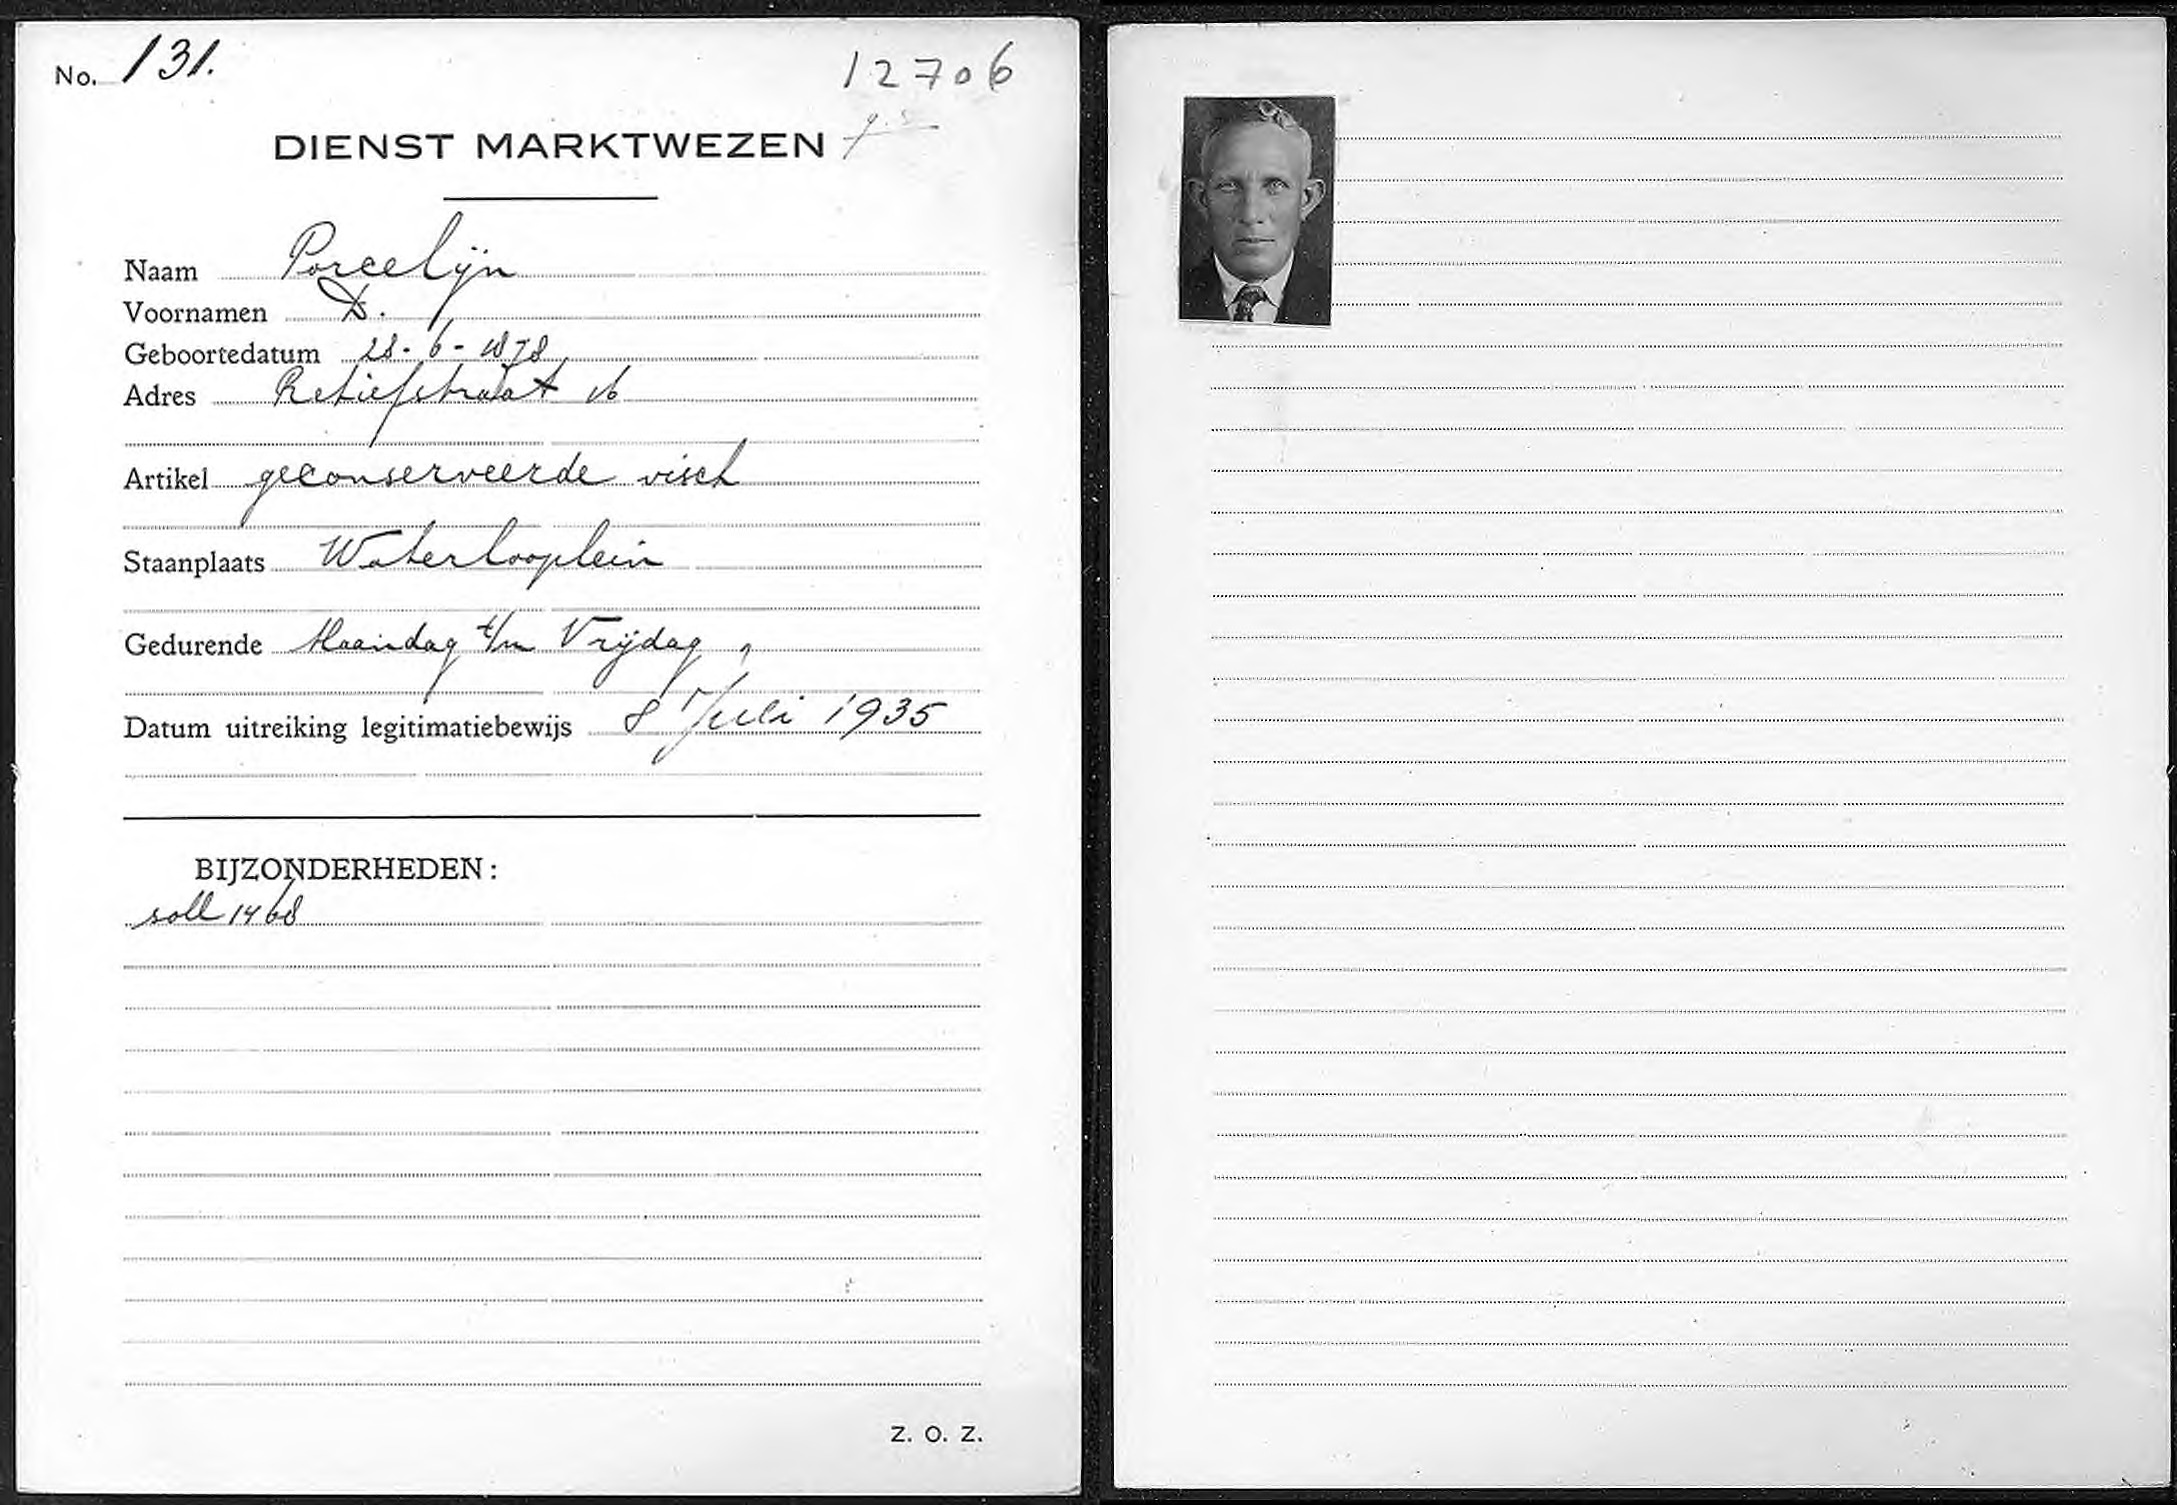 No. 131.
12706
DIENST MARKTWEZEN
Naam Porcelijn
Voornamen D.
Geboortedatum 28-6-1878
Adres Retiefstraat 16
Artikel geconserveerde visch
Staanplaats Waterlooplein
Gedurende Maandag t/m Vrijdag
Datum uitreiking legitimatiebewijs 8 Juli 1935
BIJZONDERHEDEN:
soll 1468
Z. O. Z.